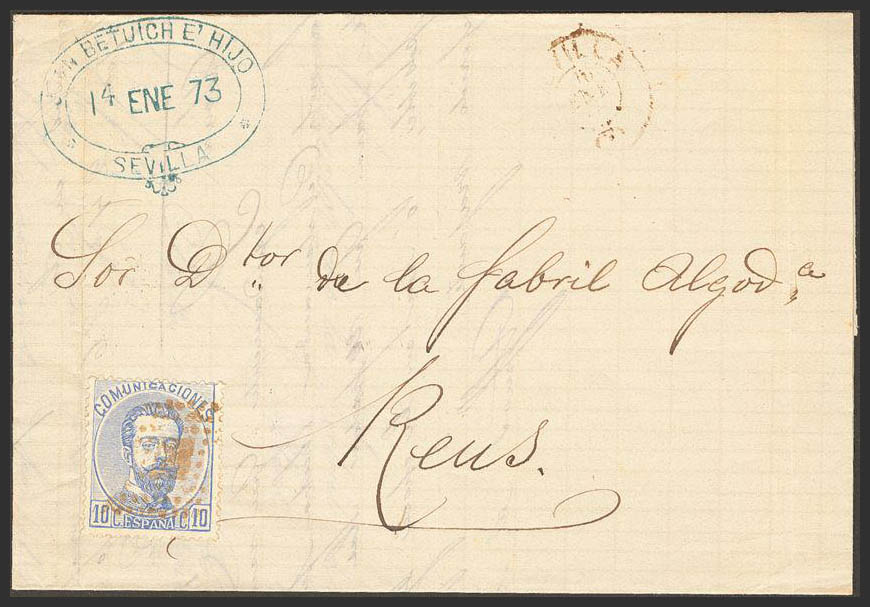 JUAN BETUICH E' HIJO
14 ENE 73
SEVILLA
Sor Dtor de la fabril Algodª
Reus.
COMUNICACIONES
10 C. ESPAÑA C. 10